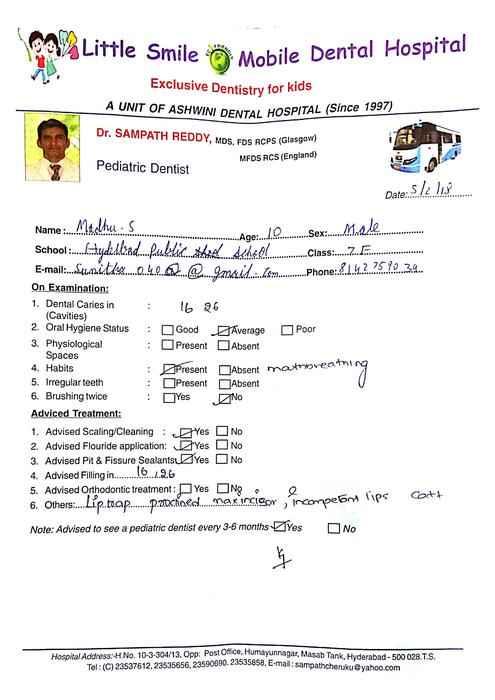 Little Smile Mobile Dental Hospital
Exclusive Dentistry for kids
A UNIT OF ASHWINI DENTAL HOSPITAL (Since 1997)
Dr. SAMPATH REDDY, MDS, FDS RCPS (Glasgow)
MFDS RCS (England)
Pediatric Dentist
Date: 5/2/18
Name: Madhu - S Age: 10 Sex: Male
School: Public School Class: 7 F
E-mail: @ gmail.com Phone:
On Examination:
1. Dental Caries in (Cavities) : 16 26
2. Oral Hygiene Status : Good Average Poor
3. Physiological Spaces : Present Absent
4. Habits : Present Absent
5. Irregular teeth : Present Absent
6. Brushing twice : Yes No
Adviced Treatment:
1. Advised Scaling/Cleaning : Yes No
2. Advised Flouride application: Yes No
3. Advised Pit & Fissure Sealants: Yes No
4. Advised Filling in 16, 26
5. Advised Orthodontic treatment: Yes No
6. Others: Lip trap , incompetent lips
Note: Advised to see a pediatric dentist every 3-6 months Yes No
Hospital Address:-H.No. 10-3-304/13, Opp: Post Office, Humayunnagar, Masab Tank, Hyderabad - 500 028.T.S.
Tel : (C) 23537612, 23535656, 23590690. 23535858, E-mail : sampathcheruku@yahoo.com